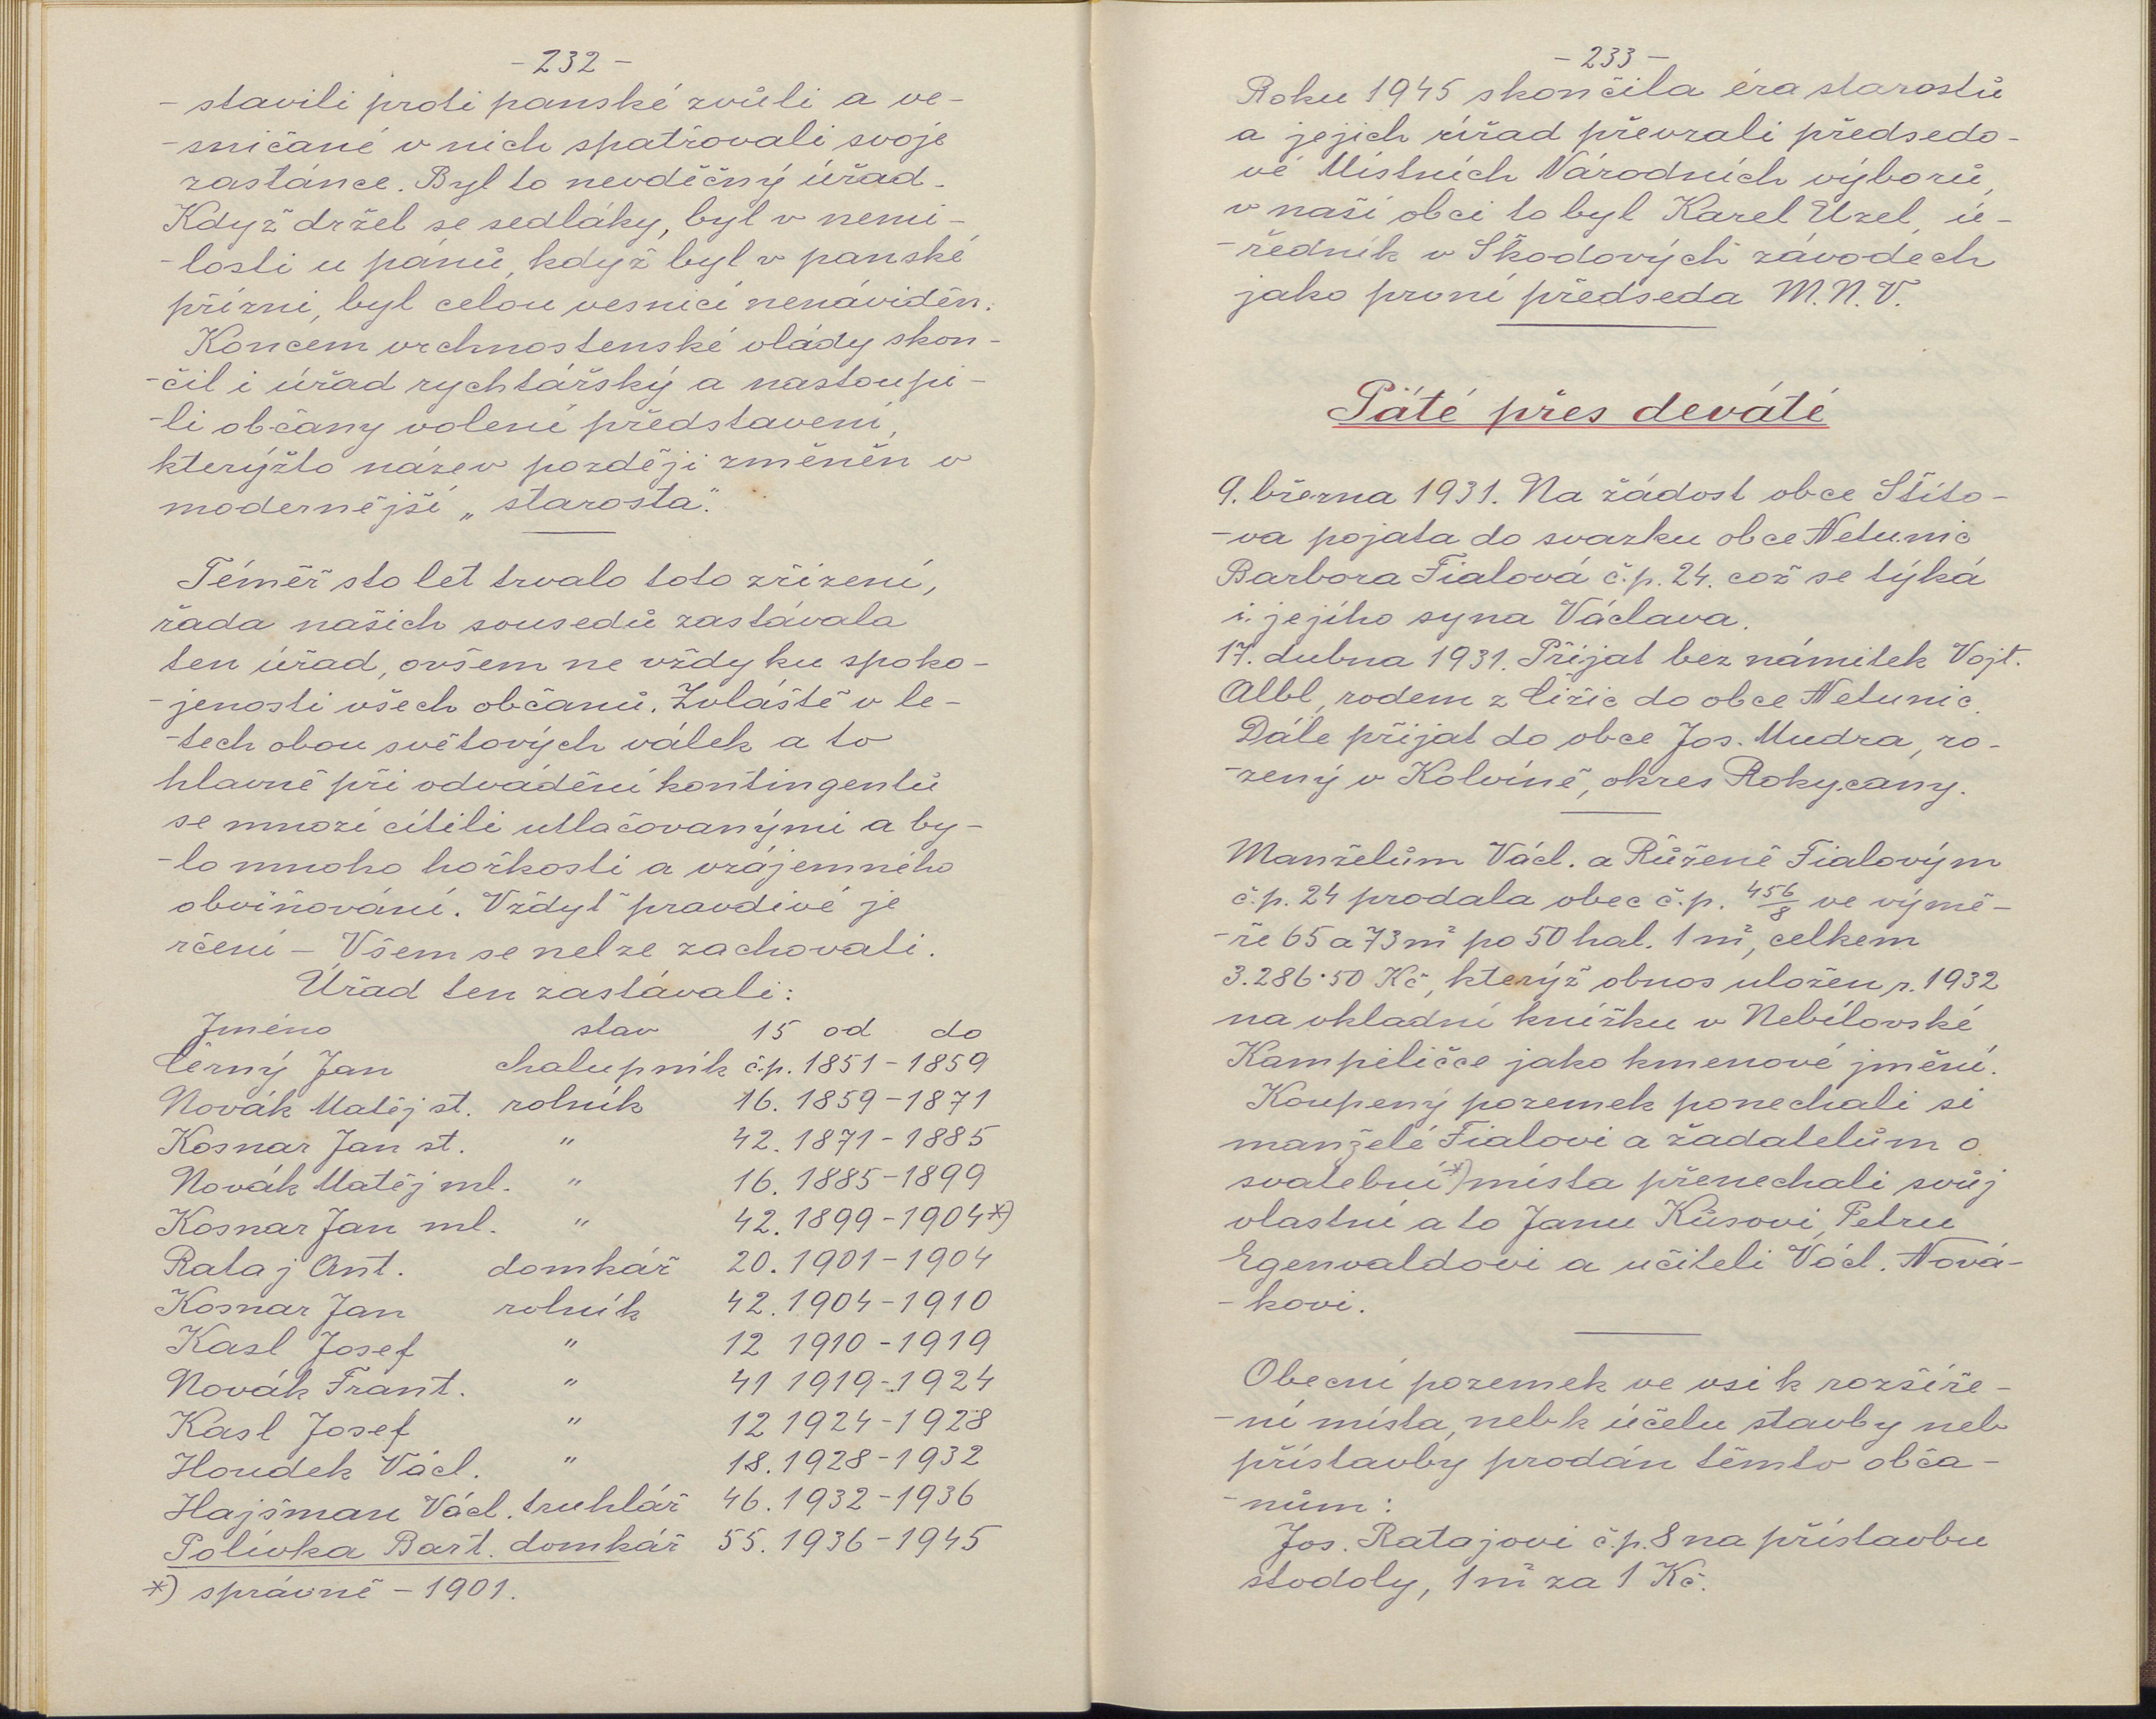 - 232 -
- stavili proti panské zvůli a ve-
- sničané v nich spatřovali svoje
zastánce. Byl to nevděčný úřad.
Když držel se sedláky, byl v nemi-
- losti u pánů, když byl v panské
přízni, byl celou vesnicí nenáviděn.
Koncem vrchnostenské vlády skon-
- čil i úřad rychtářský a nastoupi-
- li občany volení představení,
kterýžto název později změněn v
modernější „starosta".
Téměř sto let trvalo toto zřízení,
řada našich sousedů zastávala
ten úřad, ovšem ne vždy ku spoko-
- jenosti všech občanů. Zvláště v le-
- tech obou světových válek a to
hlavně při odvádění kontingentů
se mnozí cítili utlačovanými a by-
- lo mnoho hořkosti a vzájemného
obviňování. Vždyť pravdivé je
rčení - Všem se nelze zachovati.
Úřad ten zastávali:
Jméno stav 15 od do
Černý Jan chalupník č.p. 1851 - 1859
Novák Matěj st. rolník 16. 1859 - 1871
Kosnar Jan st. " 42. 1871 - 1885
Novák Matěj ml. " 16. 1885 - 1899
Kosnar Jan ml. " 42. 1899 - 1904 *)
Rataj Ant. domkář 20. 1901 - 1904
Kosnar Jan rolník 42. 1904 - 1910
Kasl Josef " 12 1910 - 1919
Novák Frant. " 41 1919 - 1924
Kasl Josef " 12 1924 - 1928
Houdek Václ. " 18. 1928 - 1932
Hajšman Václ. truhlář 46. 1932 - 1936
Polívka Bart. domkář 55. 1936 - 1945
*) správně - 1901.
- 233 -
Roku 1945 skončila éra starostů
a jejich úřad převzali předsedo-
vé Místních Národních výborů,
v naší obci to byl Karel Uzel, ú-
- ředník v Škodových závodech
jako první předseda M.N.V.
Páté přes deváté
9. března 1931. Na žádost obce Štíto-
- va pojata do svazku obce Netunic
Barbora Fialová č.p. 24. což se týká
i jejího syna Václava.
17. dubna 1931. Přijat bez námitek Vojt.
Albl, rodem z Čižic do obce Netunic.
Dále přijat do obce Jos. Mudra, ro-
- zený v Kolvíně, okres Rokycany.
Manželům Václ. a Růženě Fialovým
č.p. 24 prodala obec č.p. 456/8 ve výmě-
- ře 65 a 73 m² po 50 hal. 1 m², celkem
3.286·50 Kč, kterýž obnos uložen r. 1932
na vkladní knížku v Nebílovské
Kampeličce jako kmenové jmění.
Koupený pozemek ponechali si
manželé Fialovi a žadatelům o
svatební *) místa přenechali svůj
vlastní a to Janu Kůsovi, Petru
Egenvaldovi a učiteli Václ. Nová-
- kovi.
Obecní pozemek ve vsi k rozšíře-
- ní místa, neb k účelu stavby neb
přístavby prodán těmto obča-
- nům:
Jos. Ratajovi č.p. 8 na přístavbu
stodoly, 1 m² za 1 Kč.